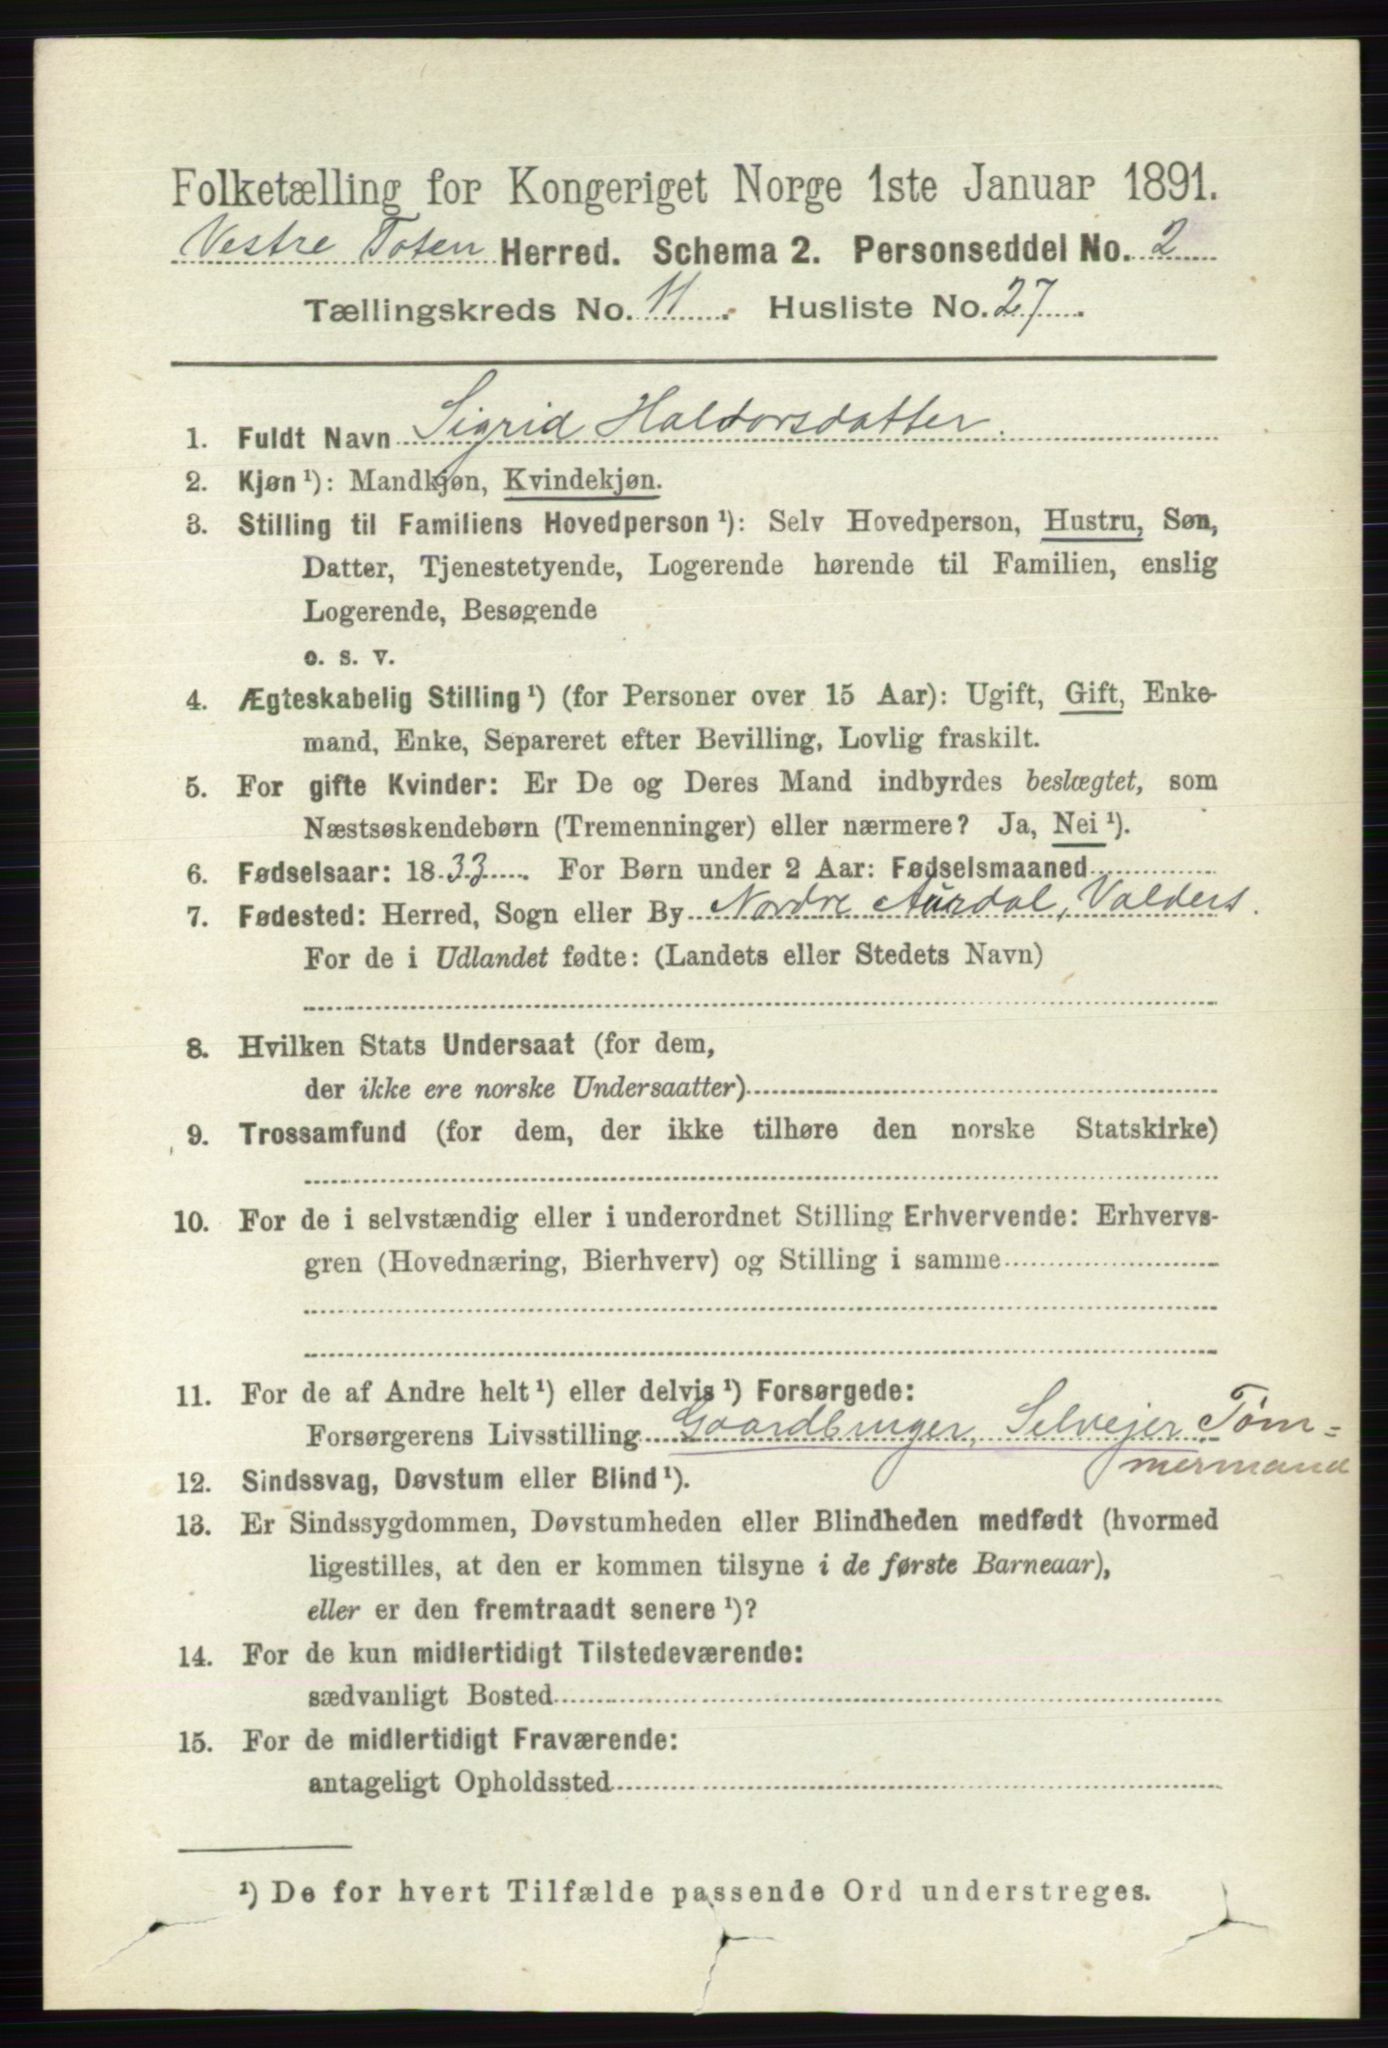 Folketælling for Kongeriget Norge 1ste Januar 1891.
Vestre Toten Herred. Schema 2. Personseddel No. 2
Tællingskreds No. 11. Husliste No. 27.
1. Fuldt Navn Sigrid Haldorsdatter.
2. Kjøn ¹): Mandkjøn, Kvindekjøn.
3. Stilling til Familiens Hovedperson ¹): Selv Hovedperson, Hustru, Søn,
Datter, Tjenestetyende, Logerende hørende til Familien, enslig
Logerende, Besøgende
o. s. v.
4. Ægteskabelig Stilling ¹) (for Personer over 15 Aar): Ugift, Gift, Enke-
mand, Enke, Separeret efter Bevilling, Lovlig fraskilt.
5. For gifte Kvinder: Er De og Deres Mand indbyrdes beslægtet, som
Næstsøskendebørn (Tremenninger) eller nærmere? Ja, Nei ¹).
6. Fødselsaar: 1833. For Børn under 2 Aar: Fødselsmaaned
7. Fødested: Herred, Sogn eller By Nordre Aurdal, Valders.
For de i Udlandet fødte: (Landets eller Stedets Navn)
8. Hvilken Stats Undersaat (for dem,
der ikke ere norske Undersaatter)
9. Trossamfund (for dem, der ikke tilhøre den norske Statskirke)
10. For de i selvstændig eller i underordnet Stilling Erhvervende: Erhvervs-
gren (Hovednæring, Bierhverv) og Stilling i samme
11. For de af Andre helt ¹) eller delvis ¹) Forsørgede:
Forsørgerens Livsstilling Gaardbruger, Selvejer Töm=
mermand
12. Sindssvag, Døvstum eller Blind ¹).
13. Er Sindssygdommen, Døvstumheden eller Blindheden medfødt (hvormed
ligestilles, at den er kommen tilsyne i de første Barneaar),
eller er den fremtraadt senere ¹)?
14. For de kun midlertidigt Tilstedeværende:
sædvanligt Bosted
15. For de midlertidigt Fraværende:
antageligt Opholdssted
¹) De for hvert Tilfælde passende Ord understreges.